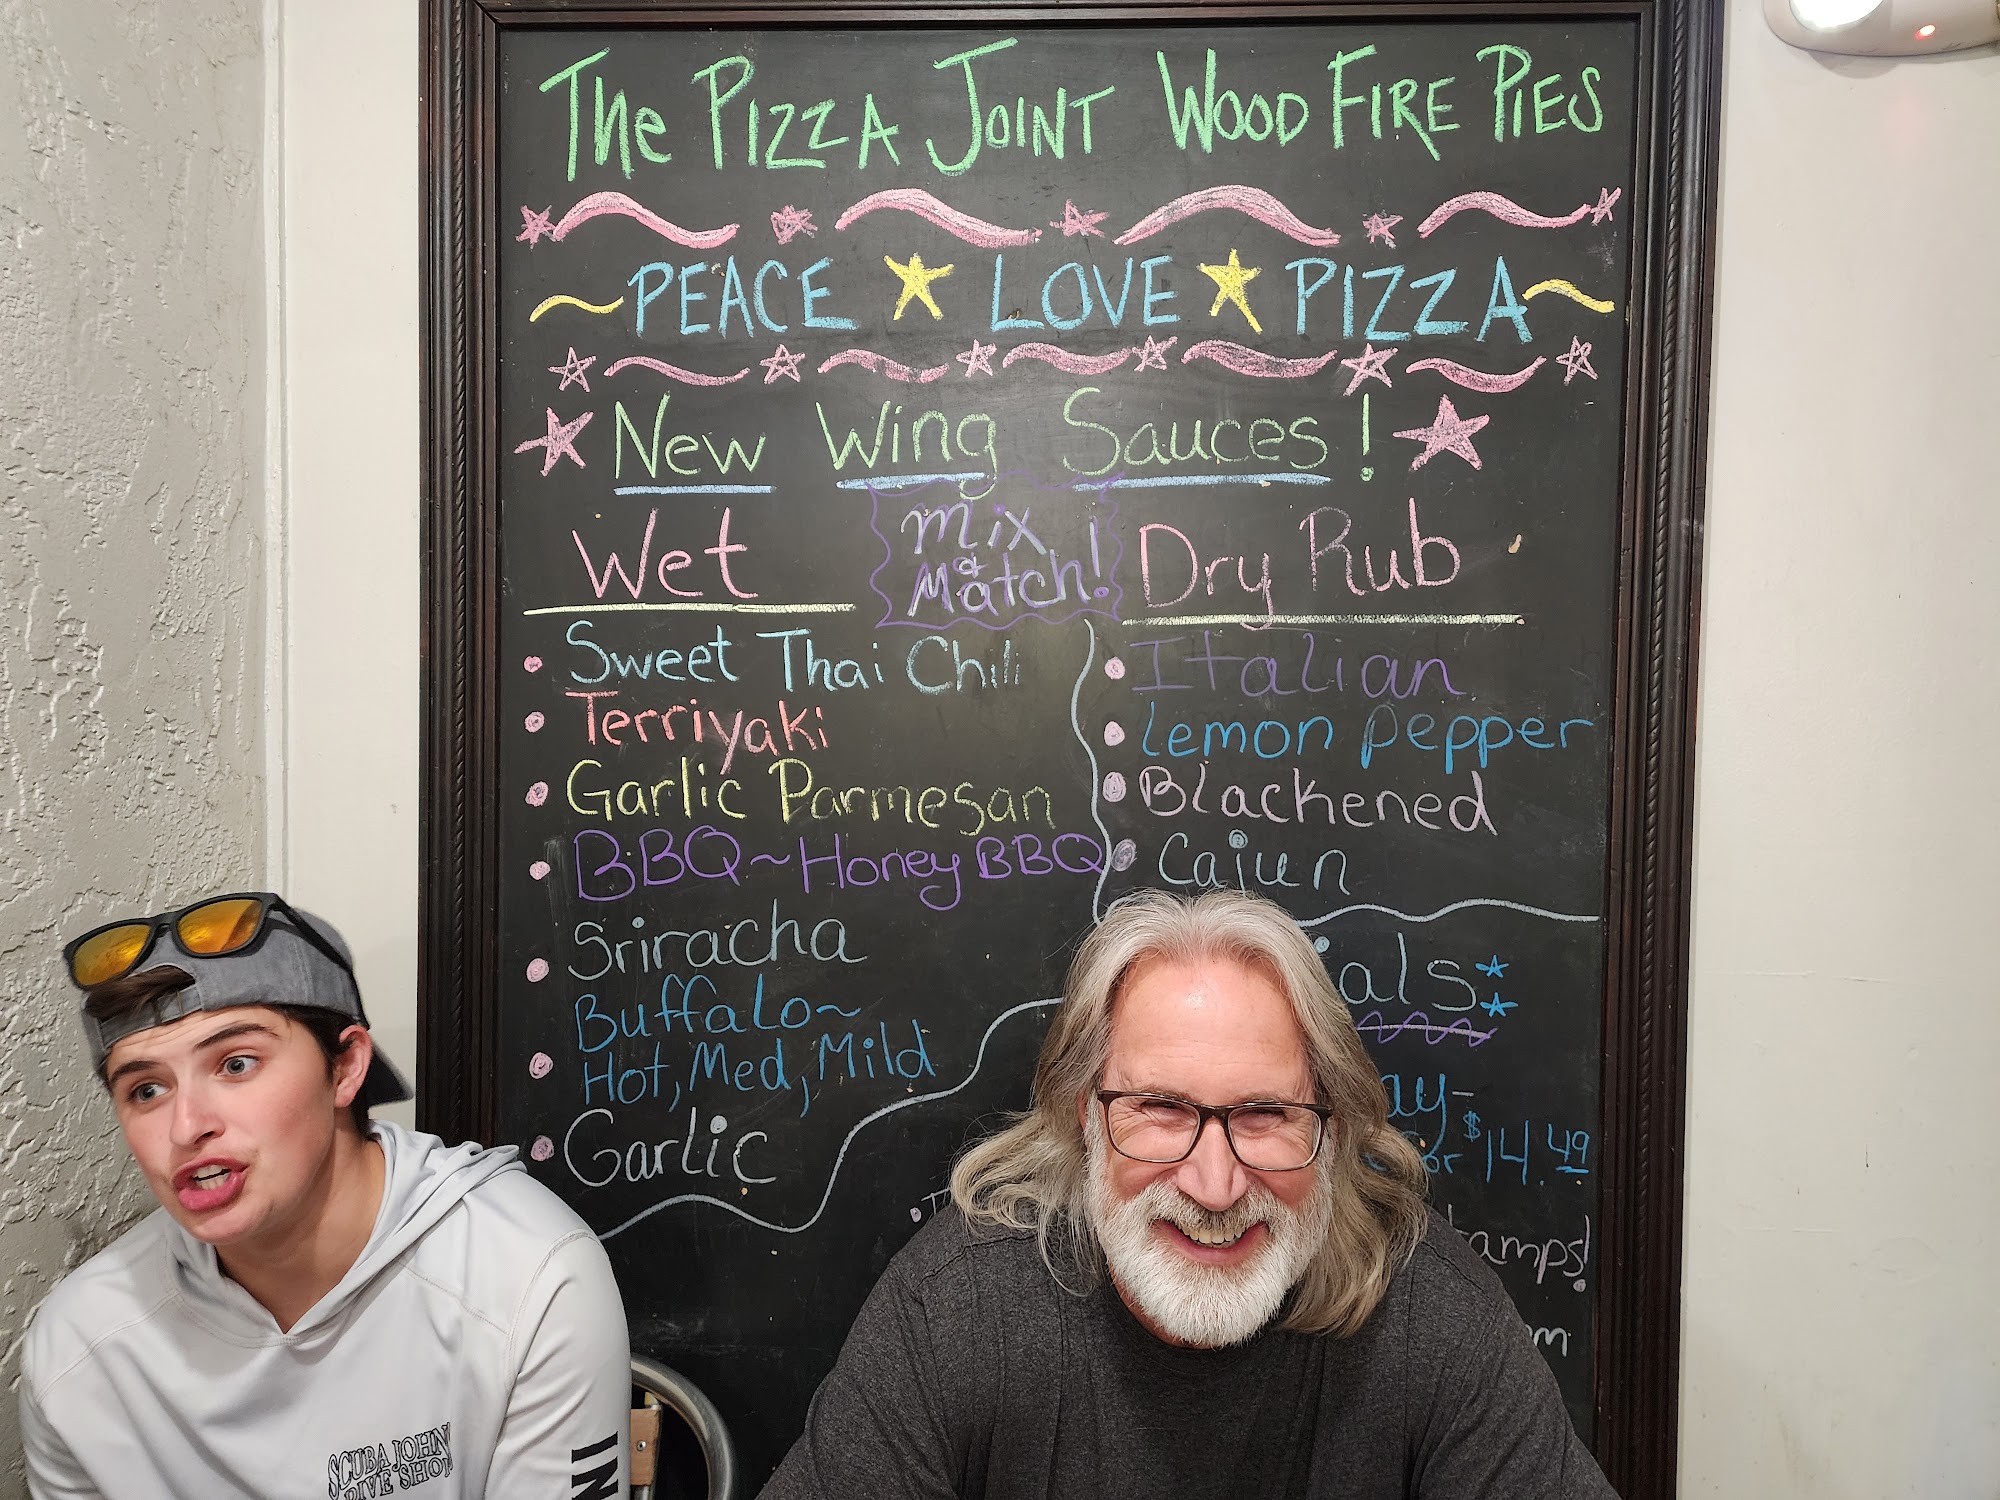 The Pizza Joint Wood Fire Pies
PEACE LOVE PIZZA
New Wing Sauces!
Mix & Match!
Wet
Sweet Thai Chili
Terriyaki
Garlic Parmesan
BBQ~Honey BBQ
Sriracha
Buffalo~
Hot, Med, Mild
Garlic
Dry Rub
Italian
Lemon Pepper
Blackened
Cajun
$14.49
SCUBA JOHN
DIVE SHO
IN